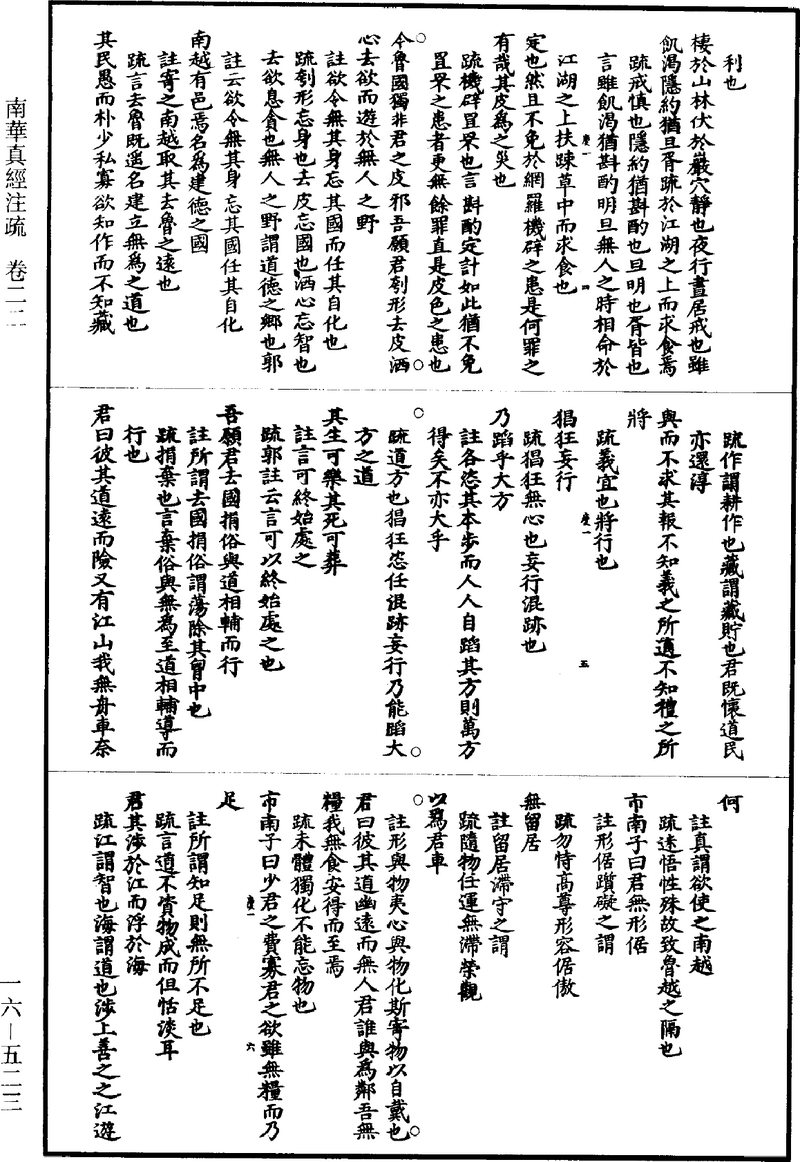 南華真經注疏　卷二二
一六—五二三
利也
棲於山林伏於巖穴靜也夜行晝居戒也雖
飢渴隱約猶且胥疏於江湖之上而求食焉
疏戒慎也隱約猶斟酌也旦明也胥皆也
言雖飢渴猶斟酌明旦無人之時相命於
江湖之上扶疎草中而求食也
定也然且不免於網羅機辟之患是何罪之
有哉其皮為之災也
疏機辟罝罘也言斟酌定計如此猶不免
罝罘之患者更無餘罪直是皮色之患也
今魯國獨非君之皮邪吾願君刳形去皮洒
心去欲而遊於無人之野
註欲令無其身忘其國而任其自化也
疏刳形忘身也去皮忘國也洒心忘智也
去欲息貪也無人之野謂道德之鄉也郭
註云欲令無其身忘其國任其自化
南越有邑焉名為建德之國
註寄之南越取其去魯之遠也
疏言去魯既遥名建立無為之道也
其民愚而朴少私寡欲知作而不知藏
疏作謂耕作也藏謂藏貯也君既懷道民
亦還淳
與而不求其報不知義之所適不知禮之所
將
疏義宜也將行也
猖狂妄行
疏猖狂無心也妄行混跡也
乃蹈乎大方
註各恣其本步而人人自蹈其方則萬方
得矣不亦大乎
疏道方也猖狂恣任混跡妄行乃能蹈大
方之道
其生可樂其死可葬
註言可終始處之
疏郭註云言可以終始處之也
吾願君去國捐俗與道相輔而行
註所謂去國捐俗謂蕩除其胷中也
疏捐棄也言棄俗與無為至道相輔導而
行也
君曰彼其道遠而險又有江山我無舟車奈
何
註真謂欲使之南越
疏迷悟性殊故致魯越之隔也
市南子曰君無形倨
註形倨躓礙之謂
疏勿恃高尊形容倨傲
無留居
註留居滯守之謂
疏隨物任運無滯榮觀
以為君車
註形與物夷心與物化斯寄物以自載也
君曰彼其道幽遠而無人君誰與為鄰吾無
糧我無食安得而至焉
疏未體獨化不能忘物也
市南子曰少君之費寡君之欲雖無糧而乃
足
註所謂知足則無所不足也
疏言道不資物成而但恬淡耳
君其涉於江而浮於海
疏江謂智也海謂道也涉上善之之江遊